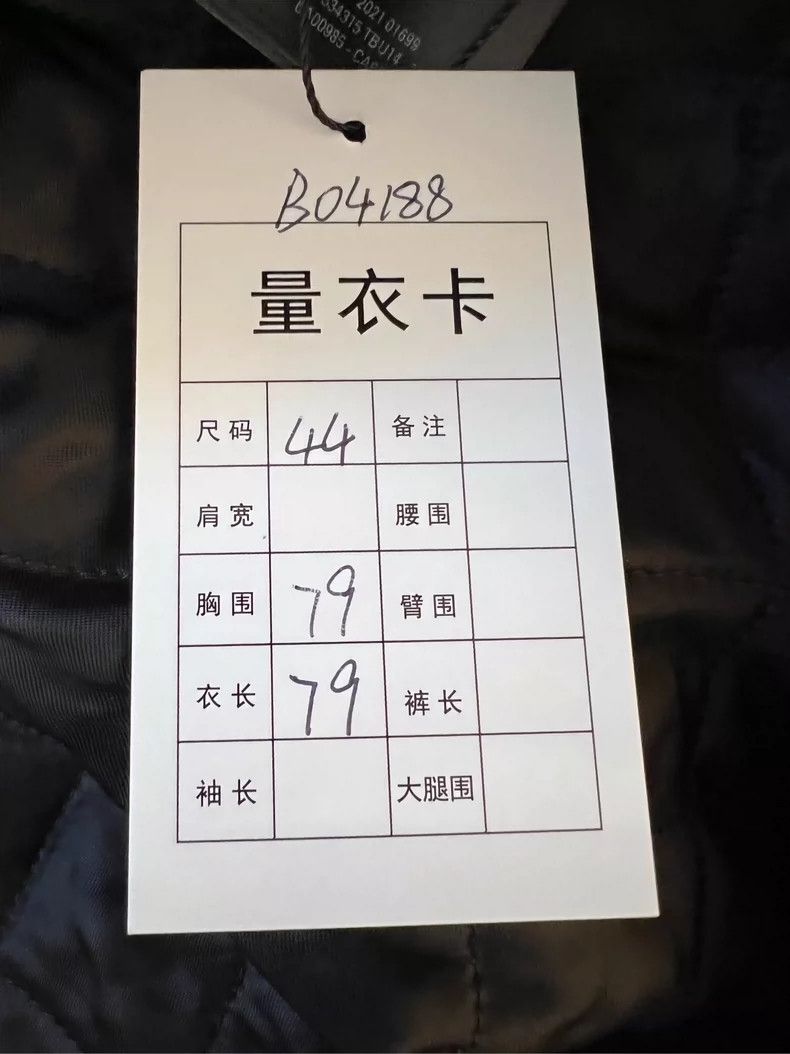 2021 01699
534315 TBU14
B04188
量衣卡
尺码 44 备注
肩宽 腰围
胸围 79 臂围
衣长 79 裤长
袖长 大腿围